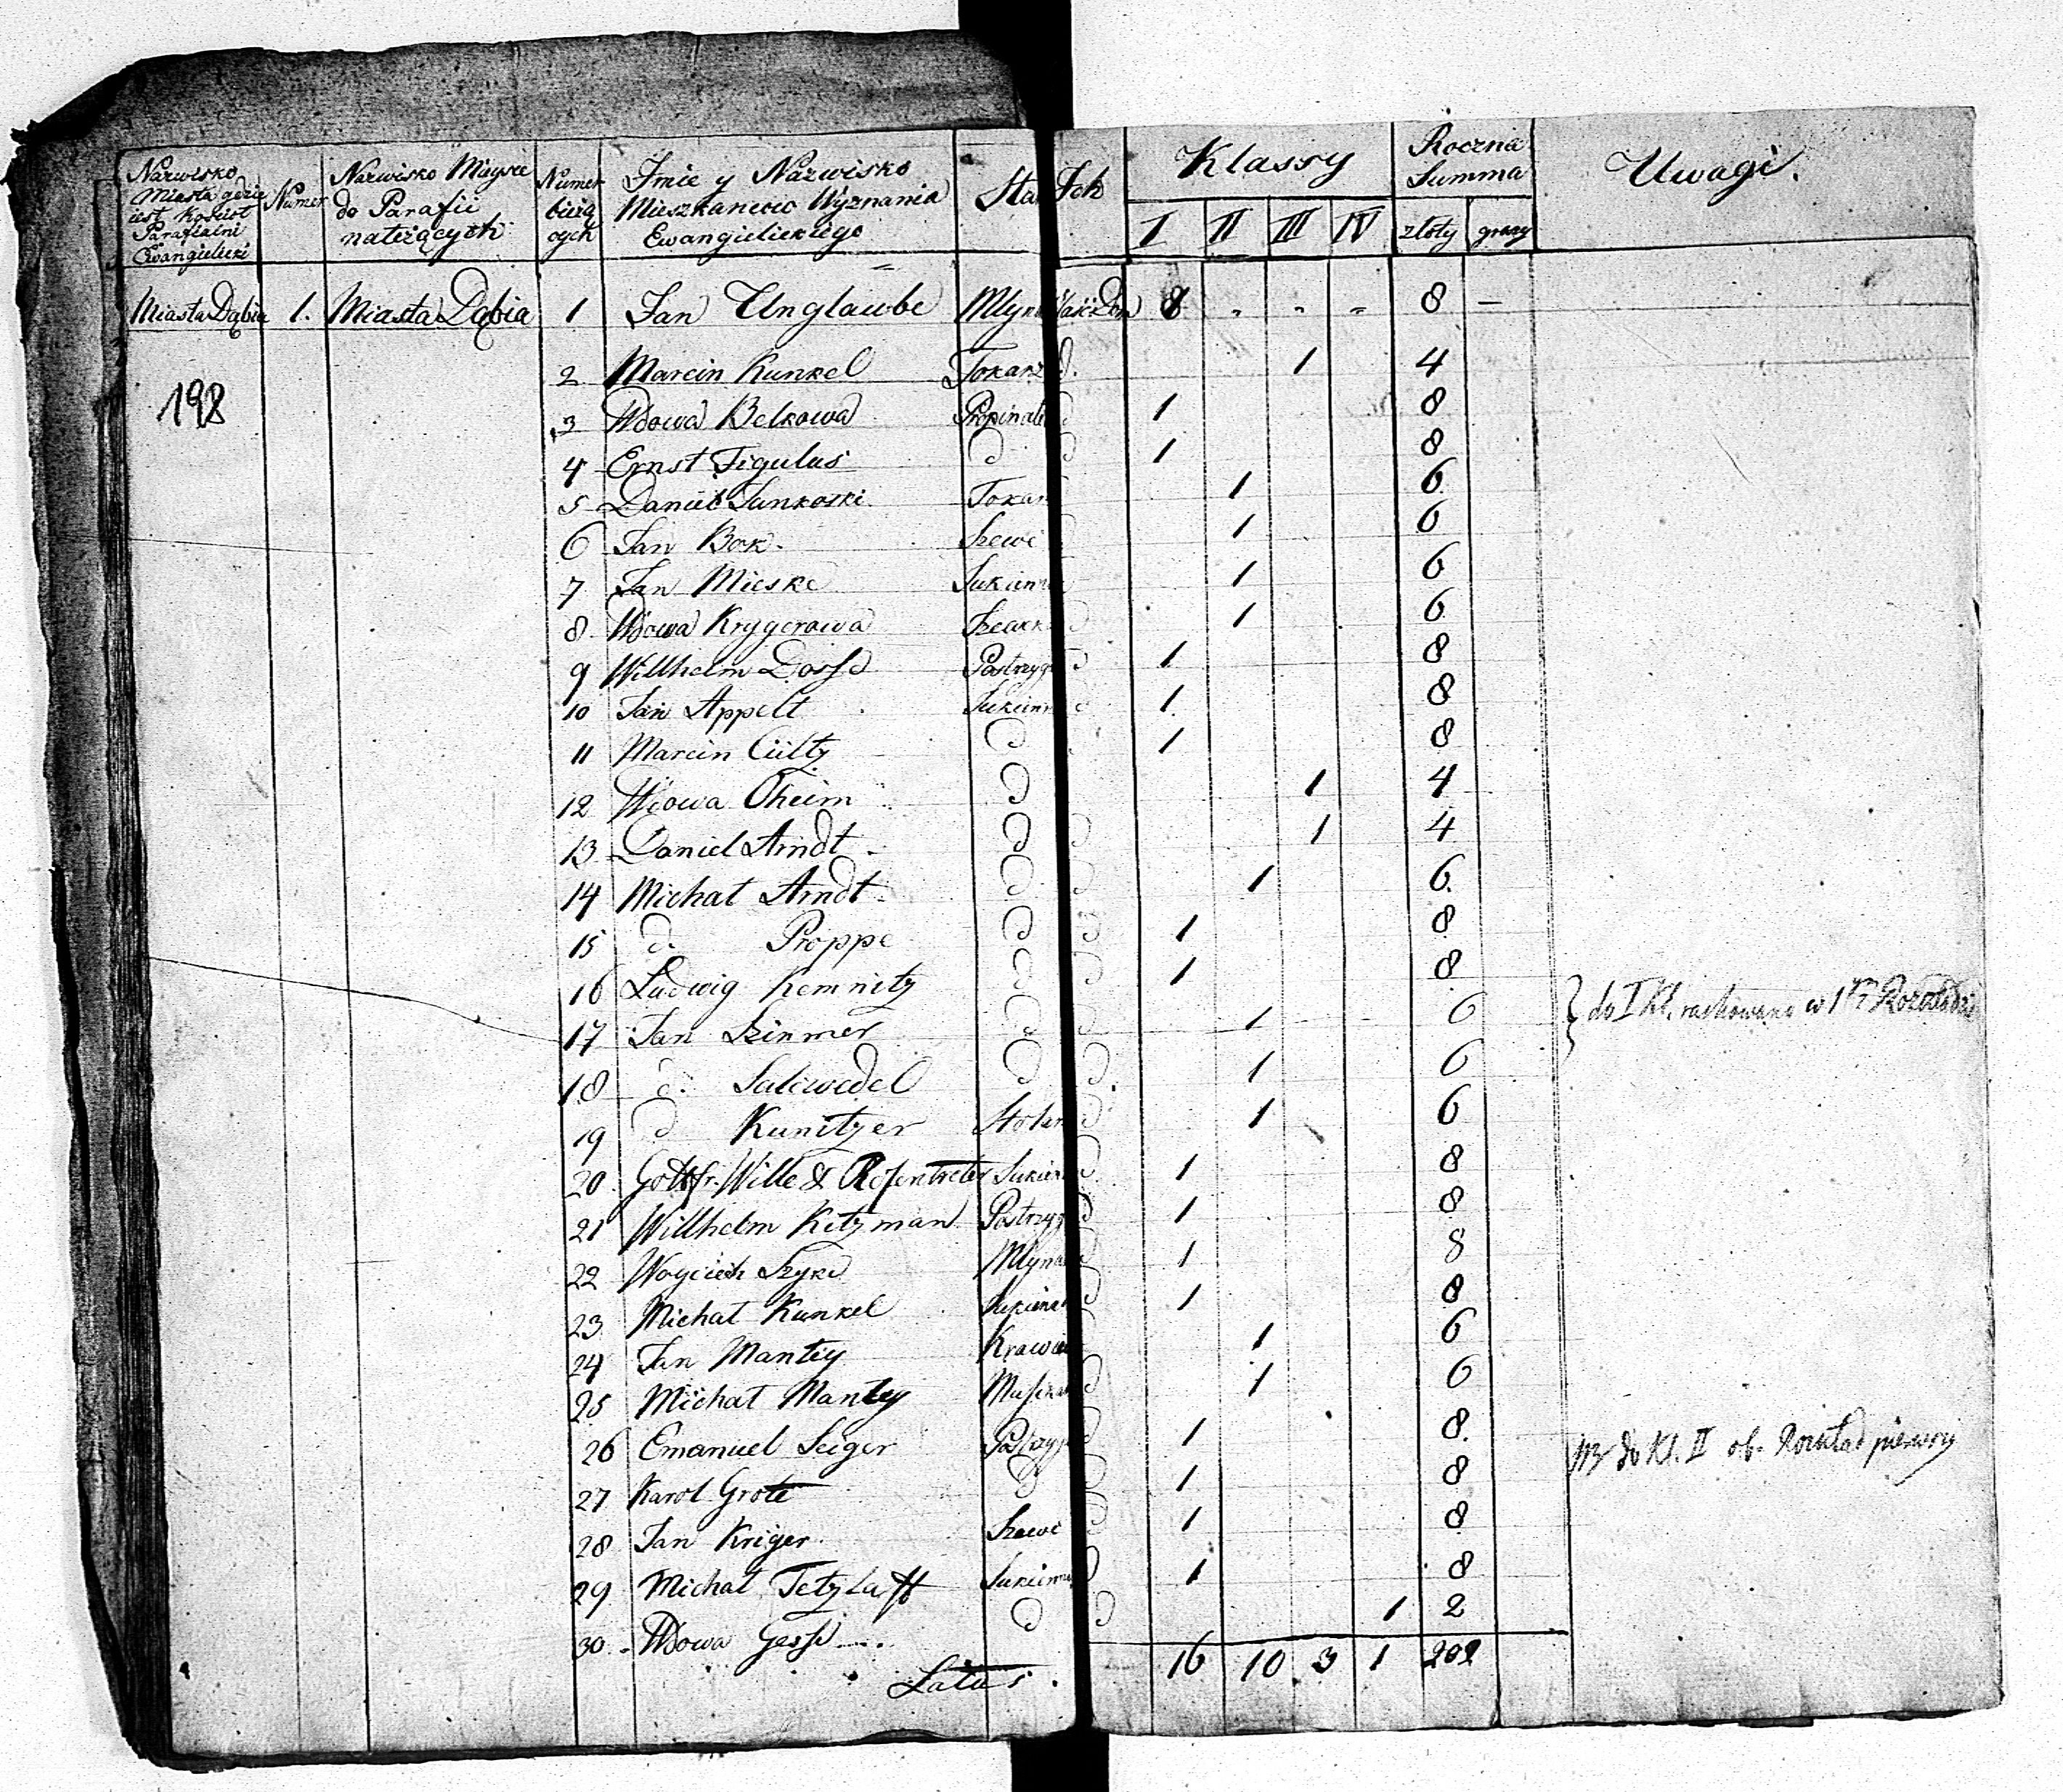 Nazwisko Miasta gdzie iest Kosciół Parafialni Ewangielicki
Numer
Nazwisko Mieysc do Parafii należących
Numer bieżących
Jmie y Nazwisko Mieszkancow Wyznania Ewangielickiego
Sta Jch
Klassy
I II III IV
Roczna Summa
złoty groszy
Uwagi.
Miasta Dąbia 1. Miasta Dąbia 1 Jan Unglaube Młyn 8 " " " 8 —
198
2 Marcin Kunkel Tokarz d. 1 4
3 Wdowa Belkowa Propinat d 1 8
4 Ernst Figulus d d 1 8
5 Daniel Junkoski Tokar 1 6
6 Jan Bok Szewc 1 6
7 Jan Mieske Sukienni 1 6
8 Wdowa Krygerowa 1 6
9 Willhelm Dosse Postrzyg d 1 8
10 Jan Appelt Sukienn d 1 8
11 Marcin Cülty d 1 8
12 Wdowa Oheim d 1 4
13 Daniel Arndt d d 1 4
14 Michał Arndt d d 1 6
15 d. Proppe d d 1 8
16 Ludwig Kemnitz d d 1 8
17 Jan Szinmer d d 1 6 do I Kl. rachowano w 1
18 d. Salewedel d d 1 6
19 d Kunitzer Stolar d 1 6
20 Gottfr. Wille & Rosentreter Sukien d 1 8
21 Willhelm Kitzman Postrzyg d 1 8
22 Woyciech Szyke Młyna d 1 8
23 Michał Kunkel Sukienn d 1 8
24 Jan Mantey Krawie 1 6
25 Michał Mantey Musika d 1 6
26 Emanuel Seiger Postrzyg d 1 8 do Kl. II
27 Karol Grote d d 1 8
28 Jan Kriger Szewc d 1 8
29 Michał Tetzlaff Sukienn d 1 8
30 Wdowa Gesse d d 1 2
Latus 16 10 3 1 202